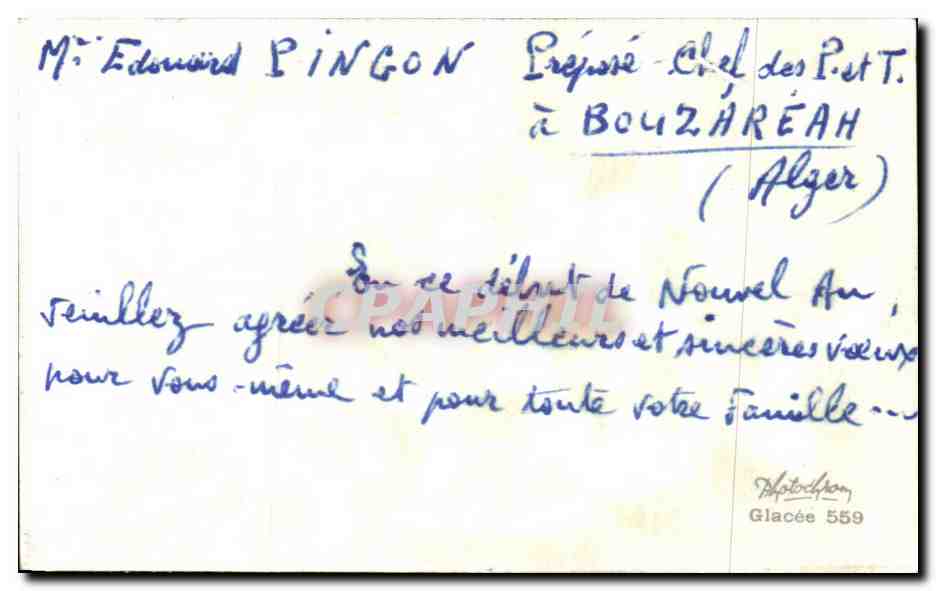 Mr Edouard PINGON Préposé-Chef des P. et T.
à BOUZARÉAH
(Alger)
En ce début de Nouvel An,
veuillez agréer nos meilleurs et sincères vœux
pour vous-même et pour toute votre Famille...
CPAPHIL
Photochrom
Glacée 559